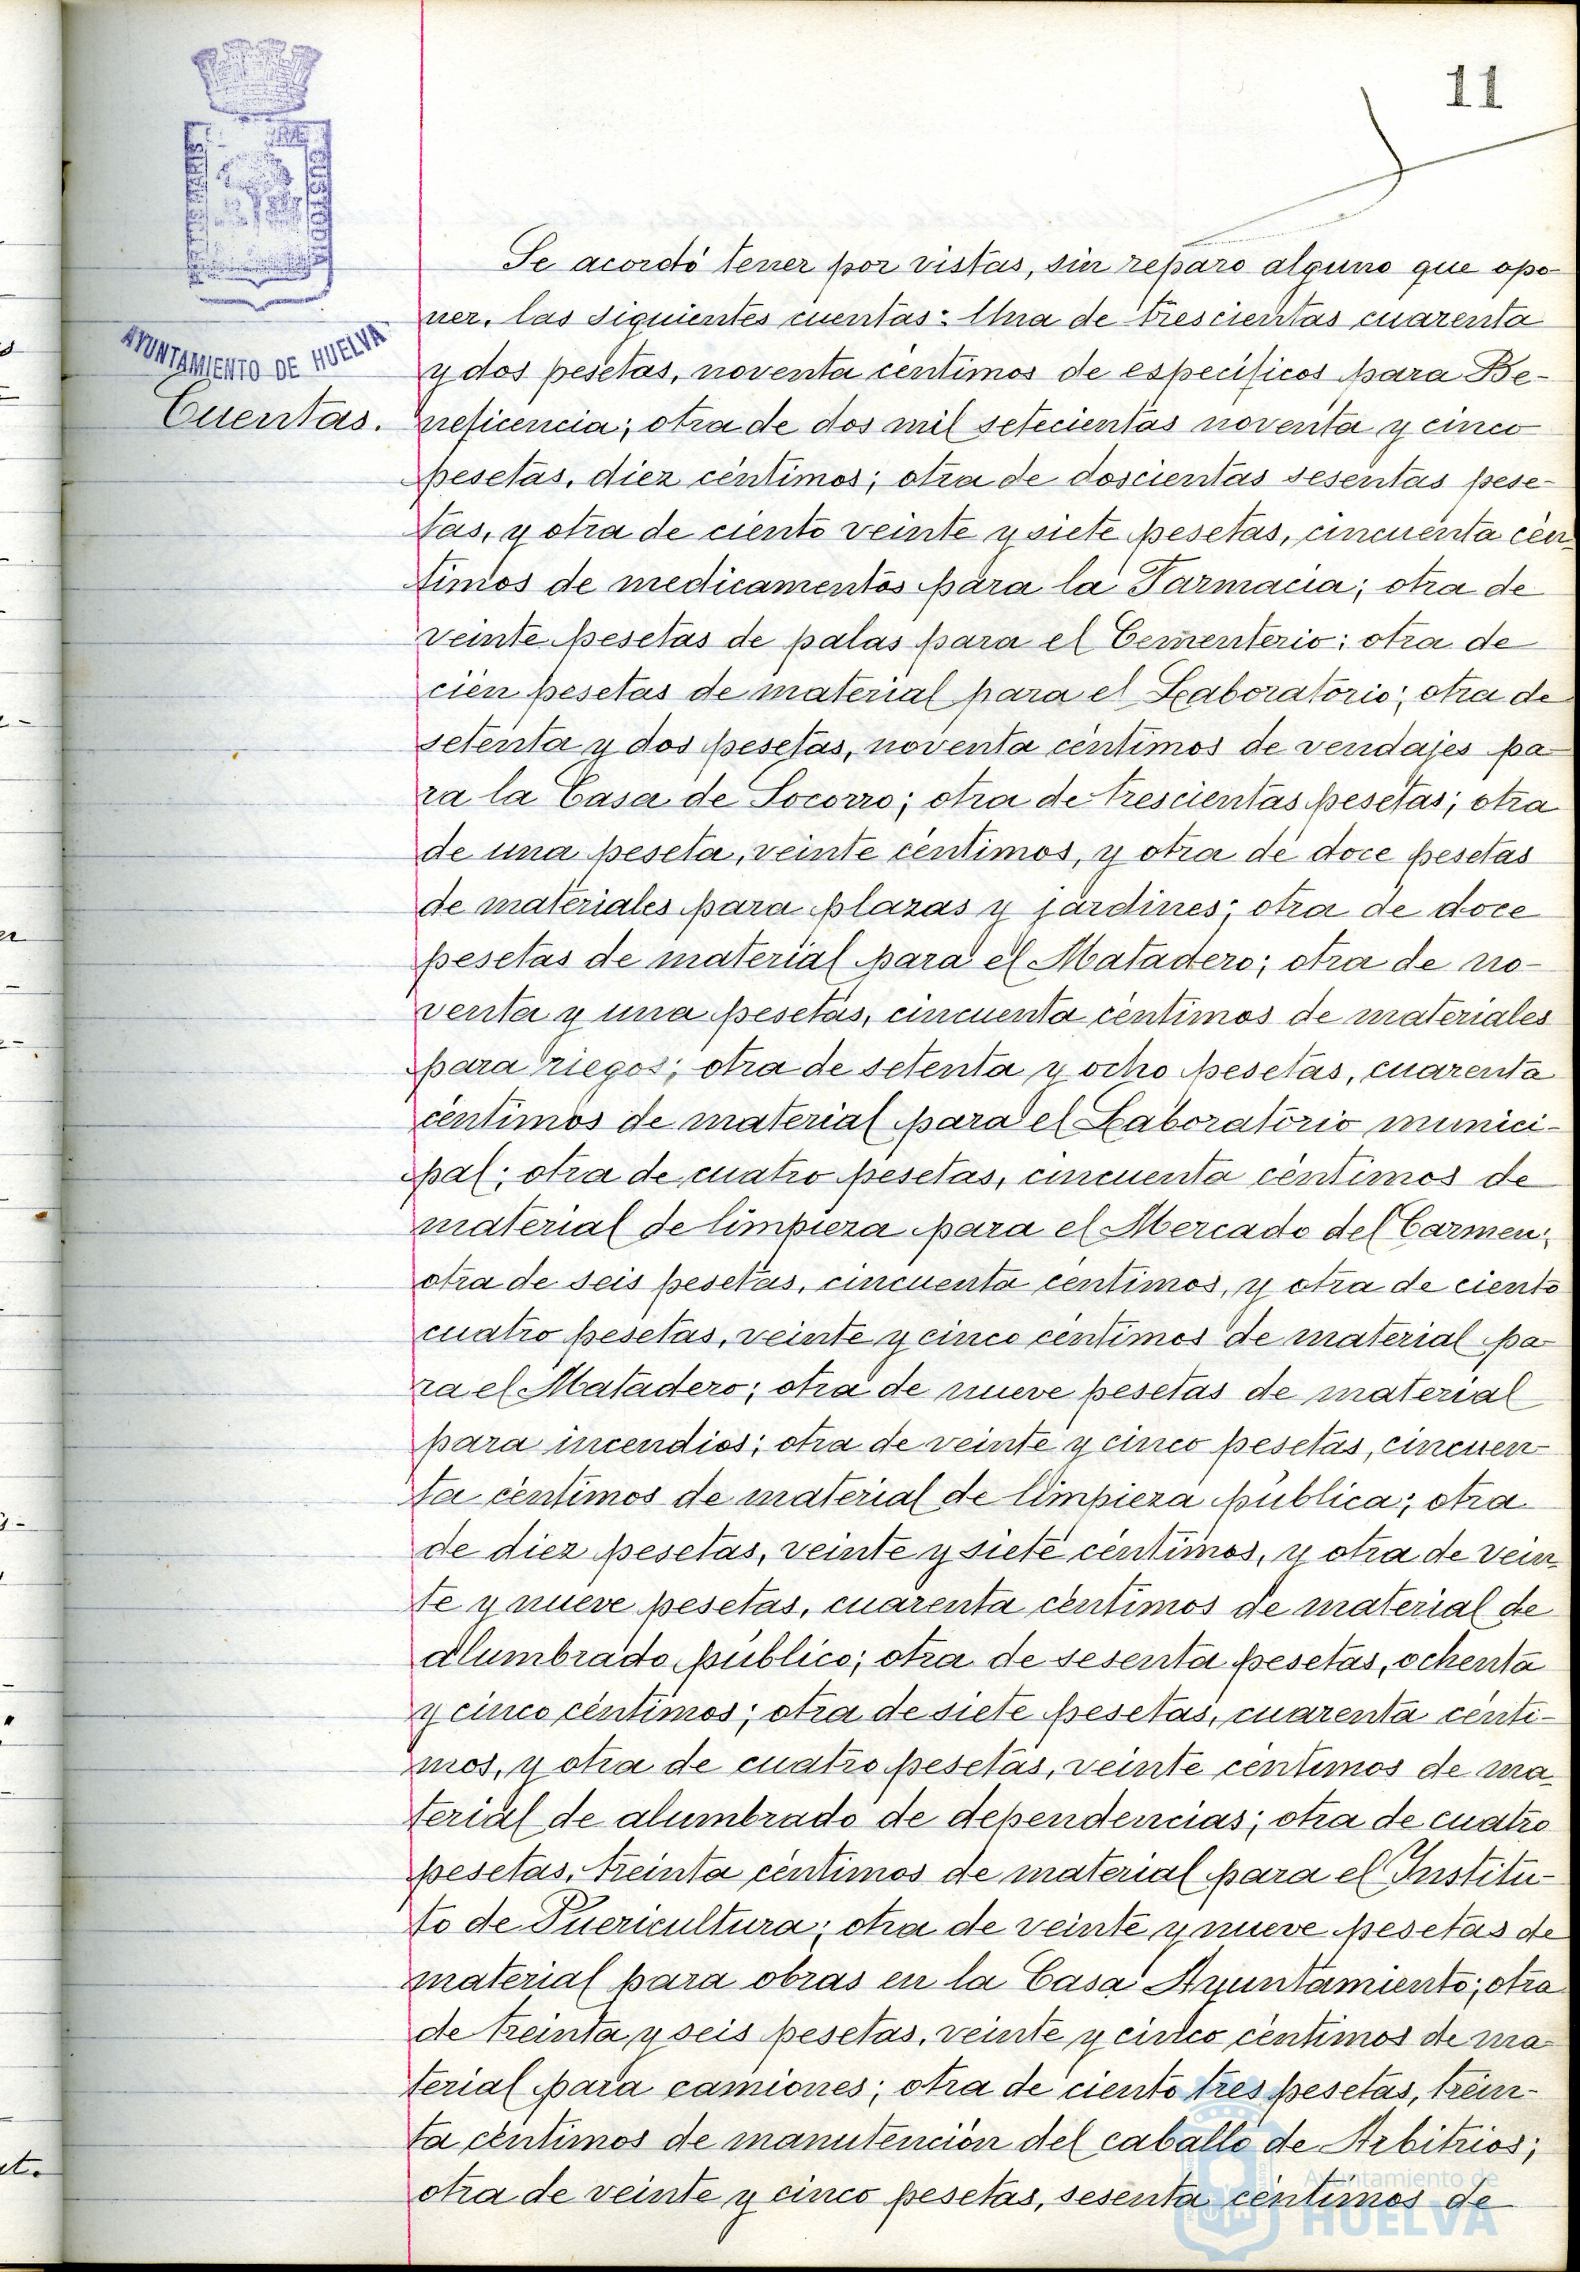 11
AYUNTAMIENTO DE HUELVA
Cuentas.
Se acordó tener por vistas, sin reparo alguno que opo-
ner, las siguientes cuentas: Una de trescientas cuarenta
y dos pesetas, noventa céntimos de específicos para Be-
neficencia; otra de dos mil setecientas noventa y cinco
pesetas, diez céntimos; otra de doscientas sesentas pese-
tas, y otra de ciento veinte y siete pesetas, cincuenta cén-
timos de medicamentos para la Farmacia; otra de
veinte pesetas de palas para el Cementerio; otra de
cien pesetas de material para el Laboratorio; otra de
setenta y dos pesetas, noventa céntimos de vendajes pa-
ra la Casa de Socorro; otra de trescientas pesetas; otra
de una peseta, veinte céntimos, y otra de doce pesetas
de materiales para plazas y jardines; otra de doce
pesetas de material para el Matadero; otra de no-
venta y una pesetas, cincuenta céntimos de materiales
para riegos; otra de setenta y ocho pesetas, cuarenta
céntimos de material para el Laboratorio munici-
pal; otra de cuatro pesetas, cincuenta céntimos de
material de limpieza para el Mercado del Carmen;
otra de seis pesetas, cincuenta céntimos, y otra de ciento
cuatro pesetas, veinte y cinco céntimos de material pa-
ra el Matadero; otra de nueve pesetas de material
para incendios; otra de veinte y cinco pesetas, cincuen-
ta céntimos de material de limpieza pública; otra
de diez pesetas, veinte y siete céntimos, y otra de vein-
te y nueve pesetas, cuarenta céntimos de material de
alumbrado público; otra de sesenta pesetas, ochenta
y cinco céntimos; otra de siete pesetas, cuarenta cénti-
mos, y otra de cuatro pesetas, veinte céntimos de ma-
terial de alumbrado de dependencias; otra de cuatro
pesetas, treinta céntimos de material para el Institu-
to de Puericultura; otra de veinte y nueve pesetas de
material para obras en la Casa Ayuntamiento; otra
de treinta y seis pesetas, veinte y cinco céntimos de ma-
terial para camiones; otra de ciento tres pesetas, trein-
ta céntimos de manutención del caballo de Arbitrios;
otra de veinte y cinco pesetas, sesenta céntimos de
Ayuntamiento de
HUELVA